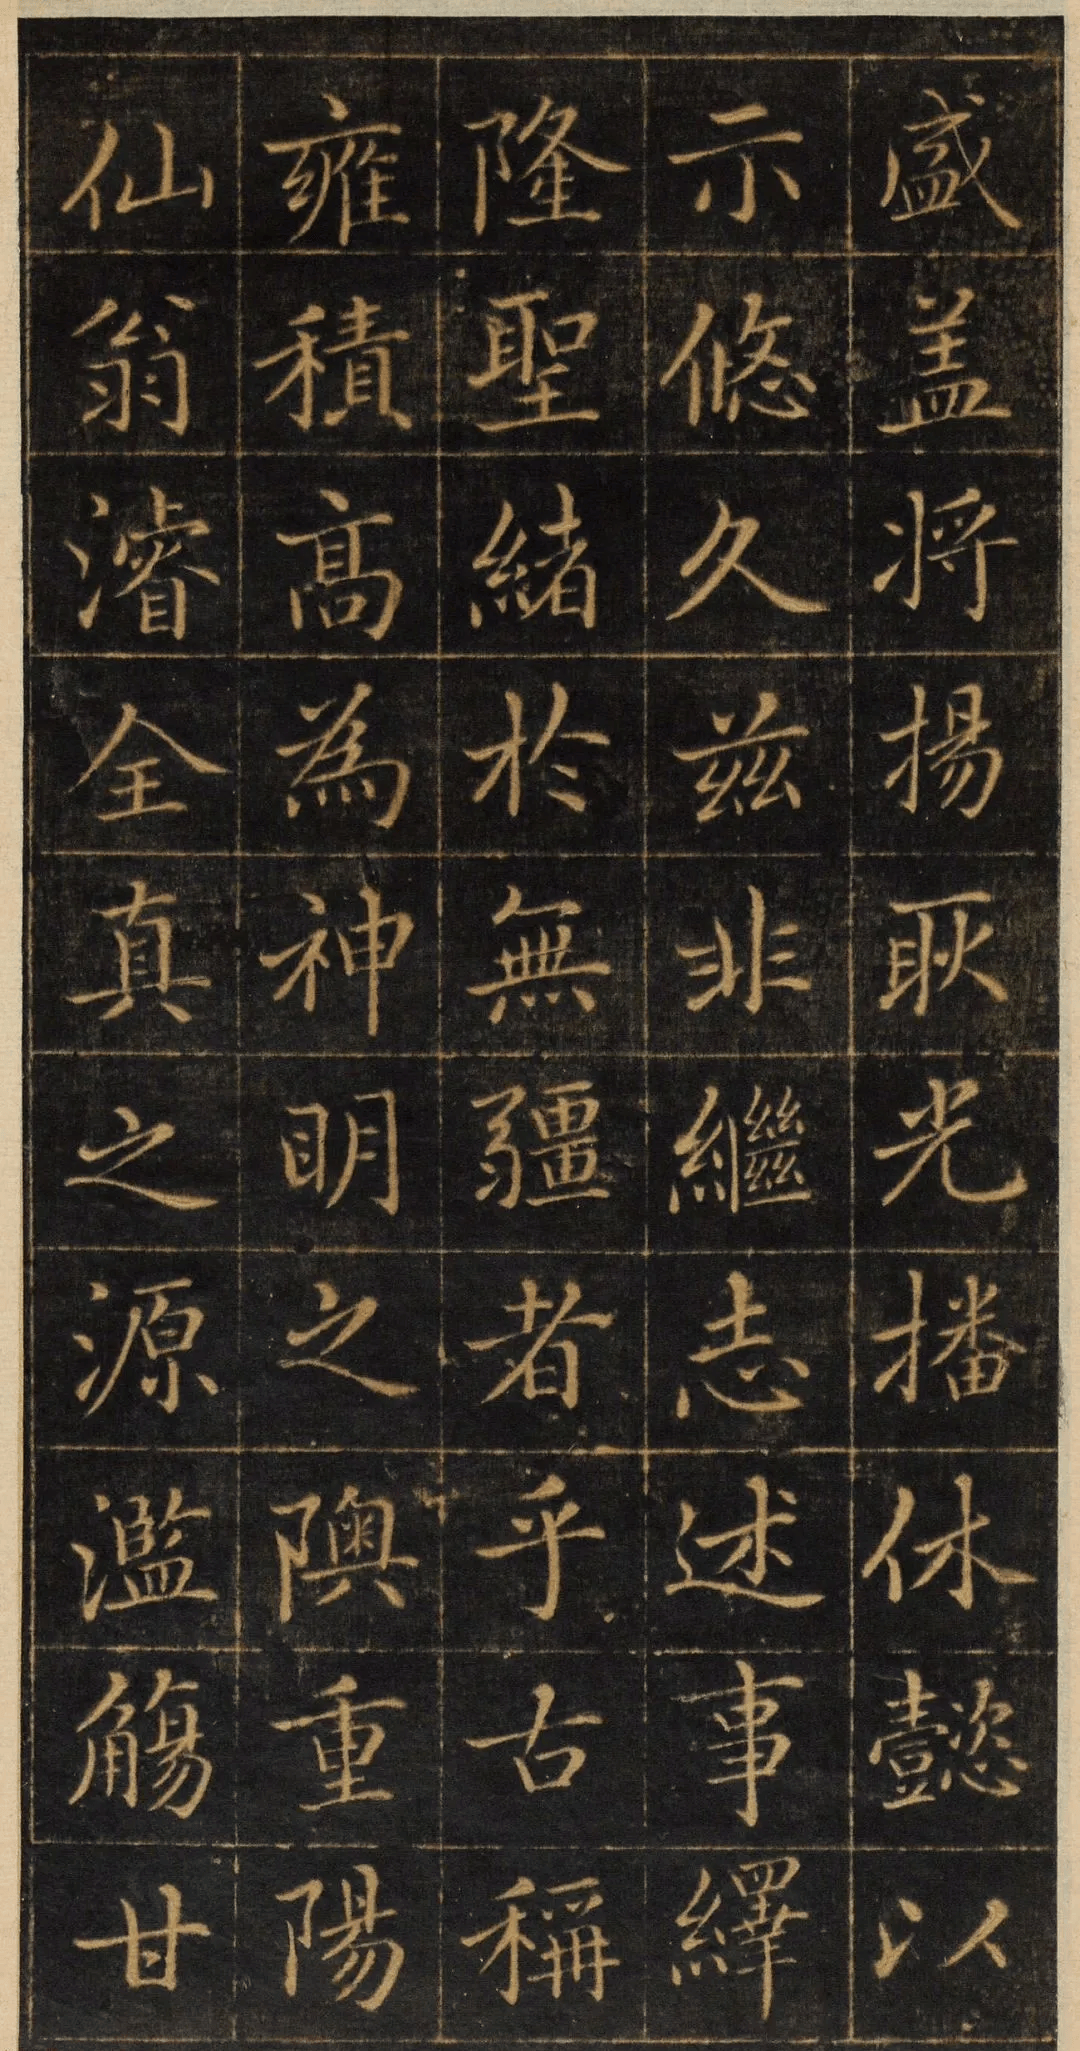 盛盖将揚耿光播休懿以
示悠久兹非繼志述事繹
隆聖緒於無疆者乎古稱
雍積高為神明之隩重陽
仙翁濬全真之源濫觴甘